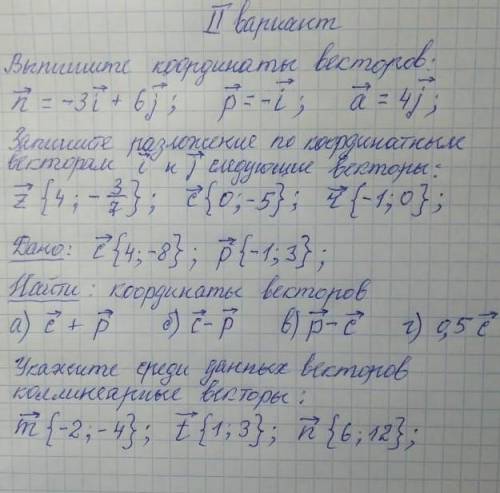 II вариант
Выпишите координаты векторов:
n⃗ = -3i⃗ + 6j⃗; p⃗ = -i⃗; a⃗ = 4j⃗;
Запишите разложение по координатным
векторам i⃗ и j⃗ следующие векторы:
z⃗ {4; -3/7}; c⃗ {0; -5}; r⃗ {-1; 0};
Дано: c⃗ {4; -8}; p⃗ {-1; 3};
Найти: координаты векторов
а) c⃗ + p⃗ б) c⃗ - p⃗ в) p⃗ - c⃗ г) 0,5 c⃗
Укажите среди данных векторов
коллинеарные векторы:
m⃗ {-2; -4}; t⃗ {1; 3}; n⃗ {6; 12};